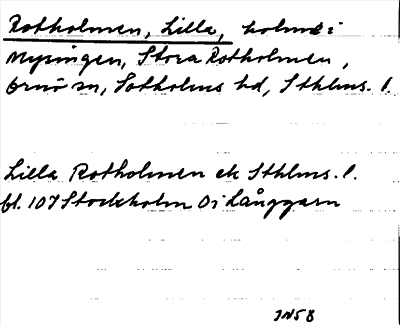 Rotholmen, Lilla, holme i
Mysingen, Stora Rotholmen,
Ornö sn, Sotholms hd, Sthlms. l.
Lilla Rotholmen ek Sthlms. l.
bl. 107 Stockholm Oi Långgarn
JN58